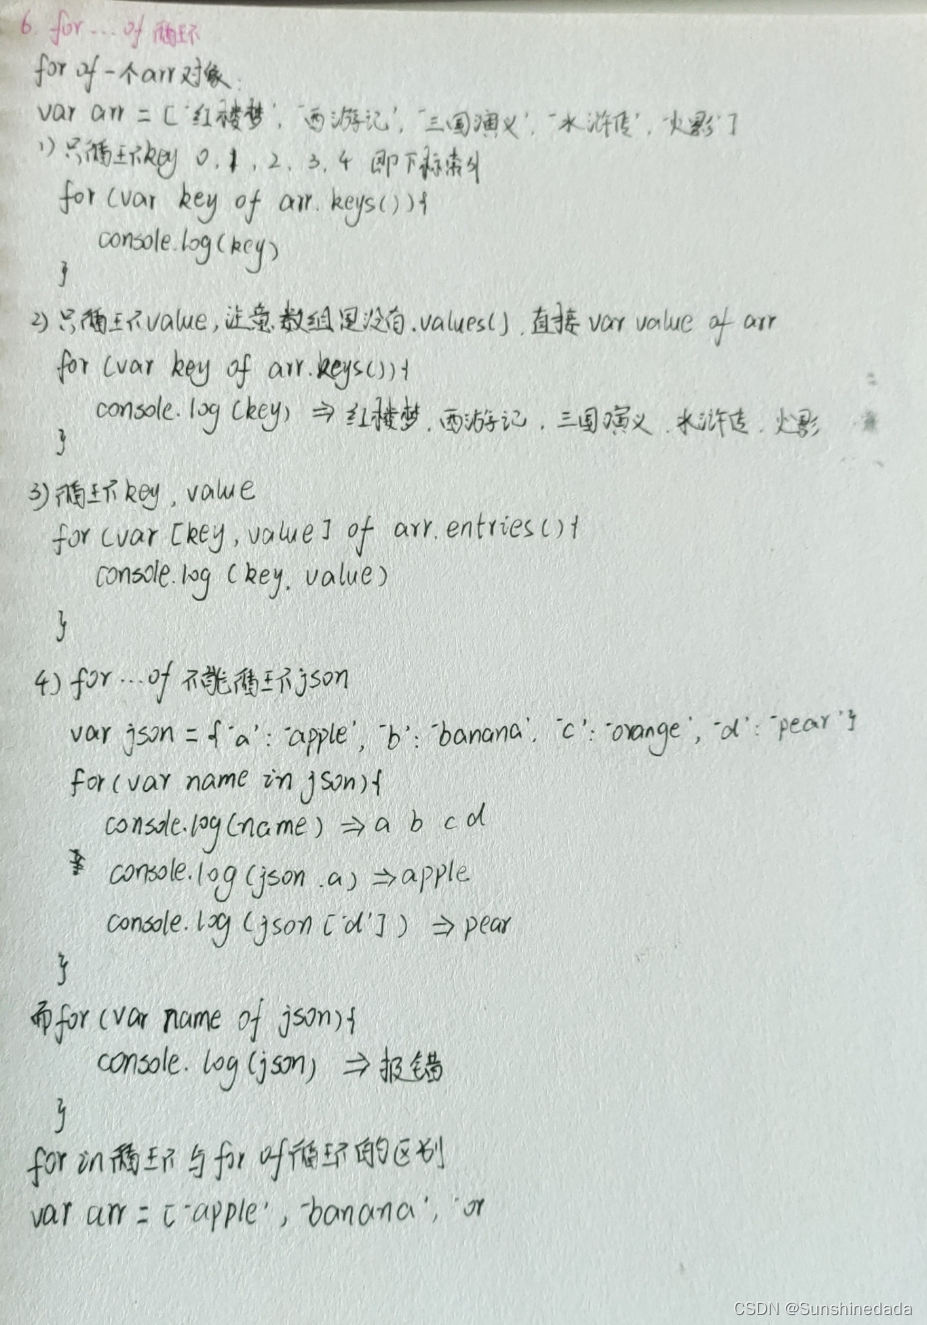 6. for...of 循环
for of 一个arr对象.
var arr = ['红楼梦', '西游记', '三国演义', '水浒传', '火影']
1) 只循环key 0, 1, 2, 3, 4 即下标索引
for (var key of arr.keys()){
console.log(key)
}
2) 只循环value, 注意数组里没有.values(), 直接 var value of arr
for (var key of arr.keys()){
console.log(key) ⇒ 红楼梦, 西游记, 三国演义, 水浒传, 火影
}
3) 循环key, value
for (var [key, value] of arr.entries(){
console.log (key, value)
}
4) for...of 不能循环json
var json = {'a': 'apple', 'b': 'banana', 'c': 'orange', 'd': 'pear'}
for (var name in json){
console.log(name) ⇒ a b c d
console.log(json.a) ⇒ apple
console.log (json['d']) ⇒ pear
}
而for (var name of json){
console.log(json) ⇒ 报错
}
for in循环与for of循环的区别
var arr = ['apple', 'banana', 'or
CSDN @Sunshinedada